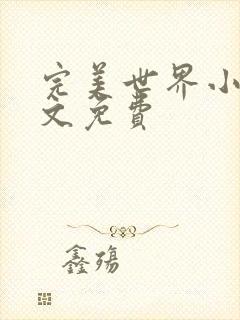 完美世界小
文免费
鑫殇